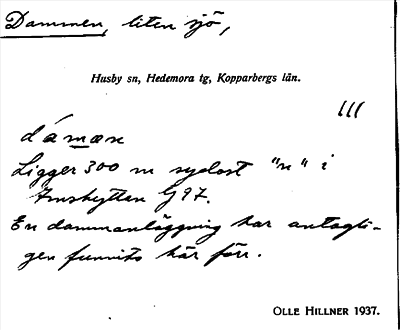 Dammen, liten sjö,
Husby sn, Hedemora tg, Kopparbergs län.
dámæn
Ligger 300 m sydost "n" i
Amshyttan G 97.
En dammanläggning har antagli-
gen funnits här förr.
OLLE HILLNER 1937.